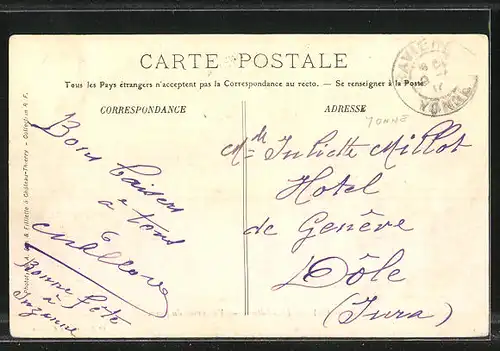 CARTE POSTALE
Tous les Pays étrangers n'acceptent pas la Correspondance au recto. — Se renseigner à la Poste
CORRESPONDANCE
ADRESSE
YONNE
YONNE
Bons baisers
à tous
Bonne fête
à
Suzanne
Mme Juliette Millot
Hotel
de Genève
Dôle
(Jura)